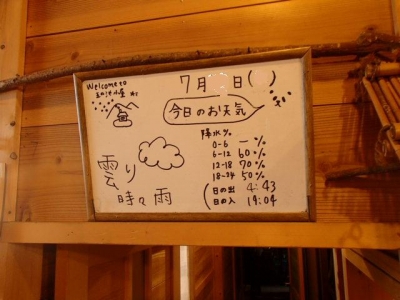 Welcome to
7月 日( )
今日のお天気
降水%
0-6 ー%
6-12 60%
12-18 70%
18-24 50%
日の出 4:43
日の入 19:04
曇り
時々雨